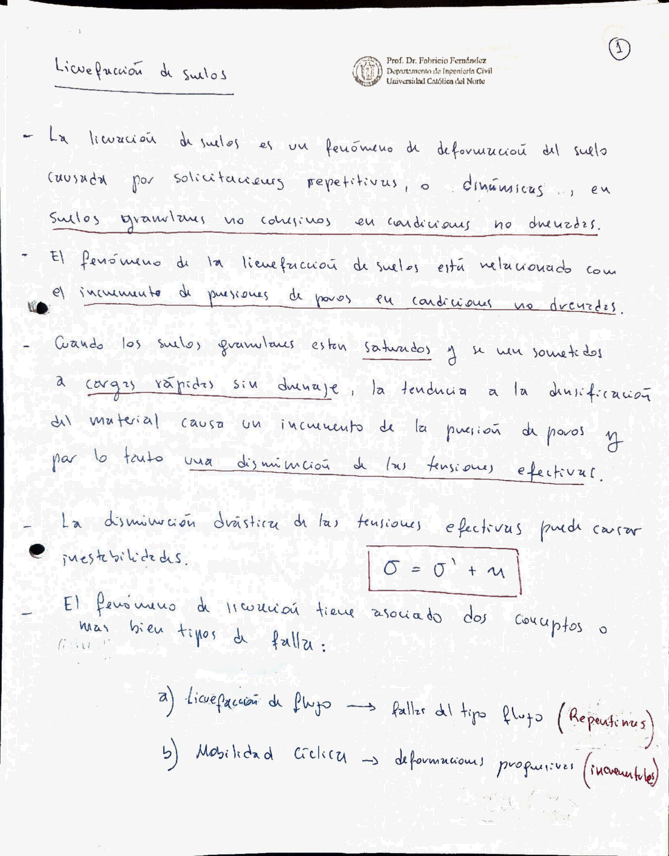 1
Licuefacción de suelos
Prof. Dr. Fabricio Fernández
Departamento de Ingeniería Civil
Universidad Católica del Norte
- La licuación de suelos es un fenómeno de deformación del suelo
causada por solicitaciones repetitivas, o dinámicas, en
suelos granulares no cohesivos en condiciones no drenadas.
- El fenómeno de la licuefacción de suelos está relacionado com
el incremento de presiones de poros en condiciones no drenadas.
- Cuando los suelos granulares estan saturados y se ven sometidos
a cargas rápidas sin drenaje, la tendencia a la densificación
del material causa un incremento de la presión de poros y
por lo tanto una disminución de las tensiones efectivas.
- La disminución drástica de las tensiones efectivas puede causar
inestabilidades.
σ = σ' + u
- El fenómeno de licuación tiene asociado dos conceptos o
mas bien tipos de falla:
a) Licuefacción de flujo → fallas del tipo flujo (Repentinas)
b) Mobilidad Cíclica → deformaciones progresivas (incrementales)